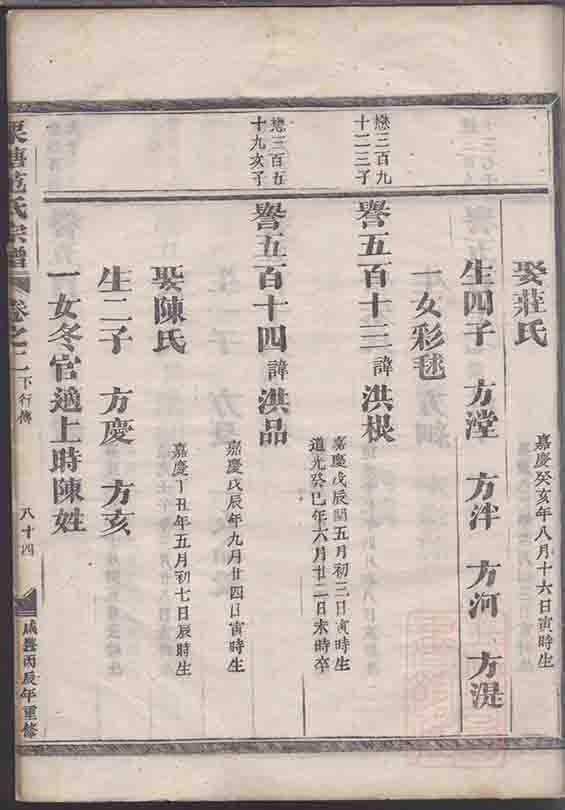 娶莊氏
嘉慶癸亥年八月十六日寅時生
生四子 方瀅 方泮 方河 方湜
一女彩毬
懋三百九
十二三子
譽五百十三 諱 洪根
嘉慶戊辰閏五月初三日寅時生
道光癸巳年六月廿二日未時卒
懋三百五
十九亥子
譽五百十四 諱 洪品
嘉慶戊辰年九月廿四日寅時生
娶陳氏
嘉慶丁丑年五月初七日辰時生
生二子 方慶 方亥
一女冬官適上時陳姓
范氏宗譜 卷之二 下行傳 八十四 咸豐丙辰年重修